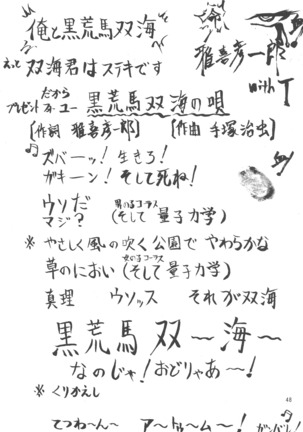 俺と黒荒馬双海
えって 双海君はステキです
雅喜彦一郎
with T
だから
プレゼント フォー ユー 黒荒馬双海の唄
[作詞 雅喜彦一郎] [作曲 手塚治虫]
ズバーッ! 生きろ!
ガキーン! そして死ね!
ウソだ
マジ? 男の子コーラス (そして量子力学)
※ やさしく風の吹く公園で やわらかな
草のにおい 女の子コーラス (そして量子力学)
真理 ウソッス それが双海
黒荒馬双〜海〜
なのじゃ! おどりゃあ〜!
※ くりかえし
48
てつわ〜ん〜 ア〜トゥ〜ム〜! ガンバレ!